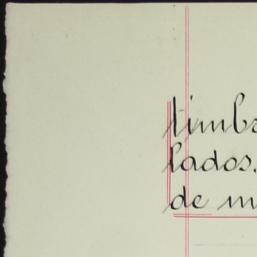 timbr
lados.
de m